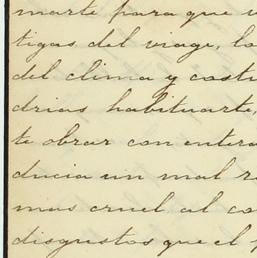 marte para que
tigas del viage, lo
del clima y costu
drias habituarte,
te obrar con entera
ducia un mal r
mas cruel al co
disgustos que el